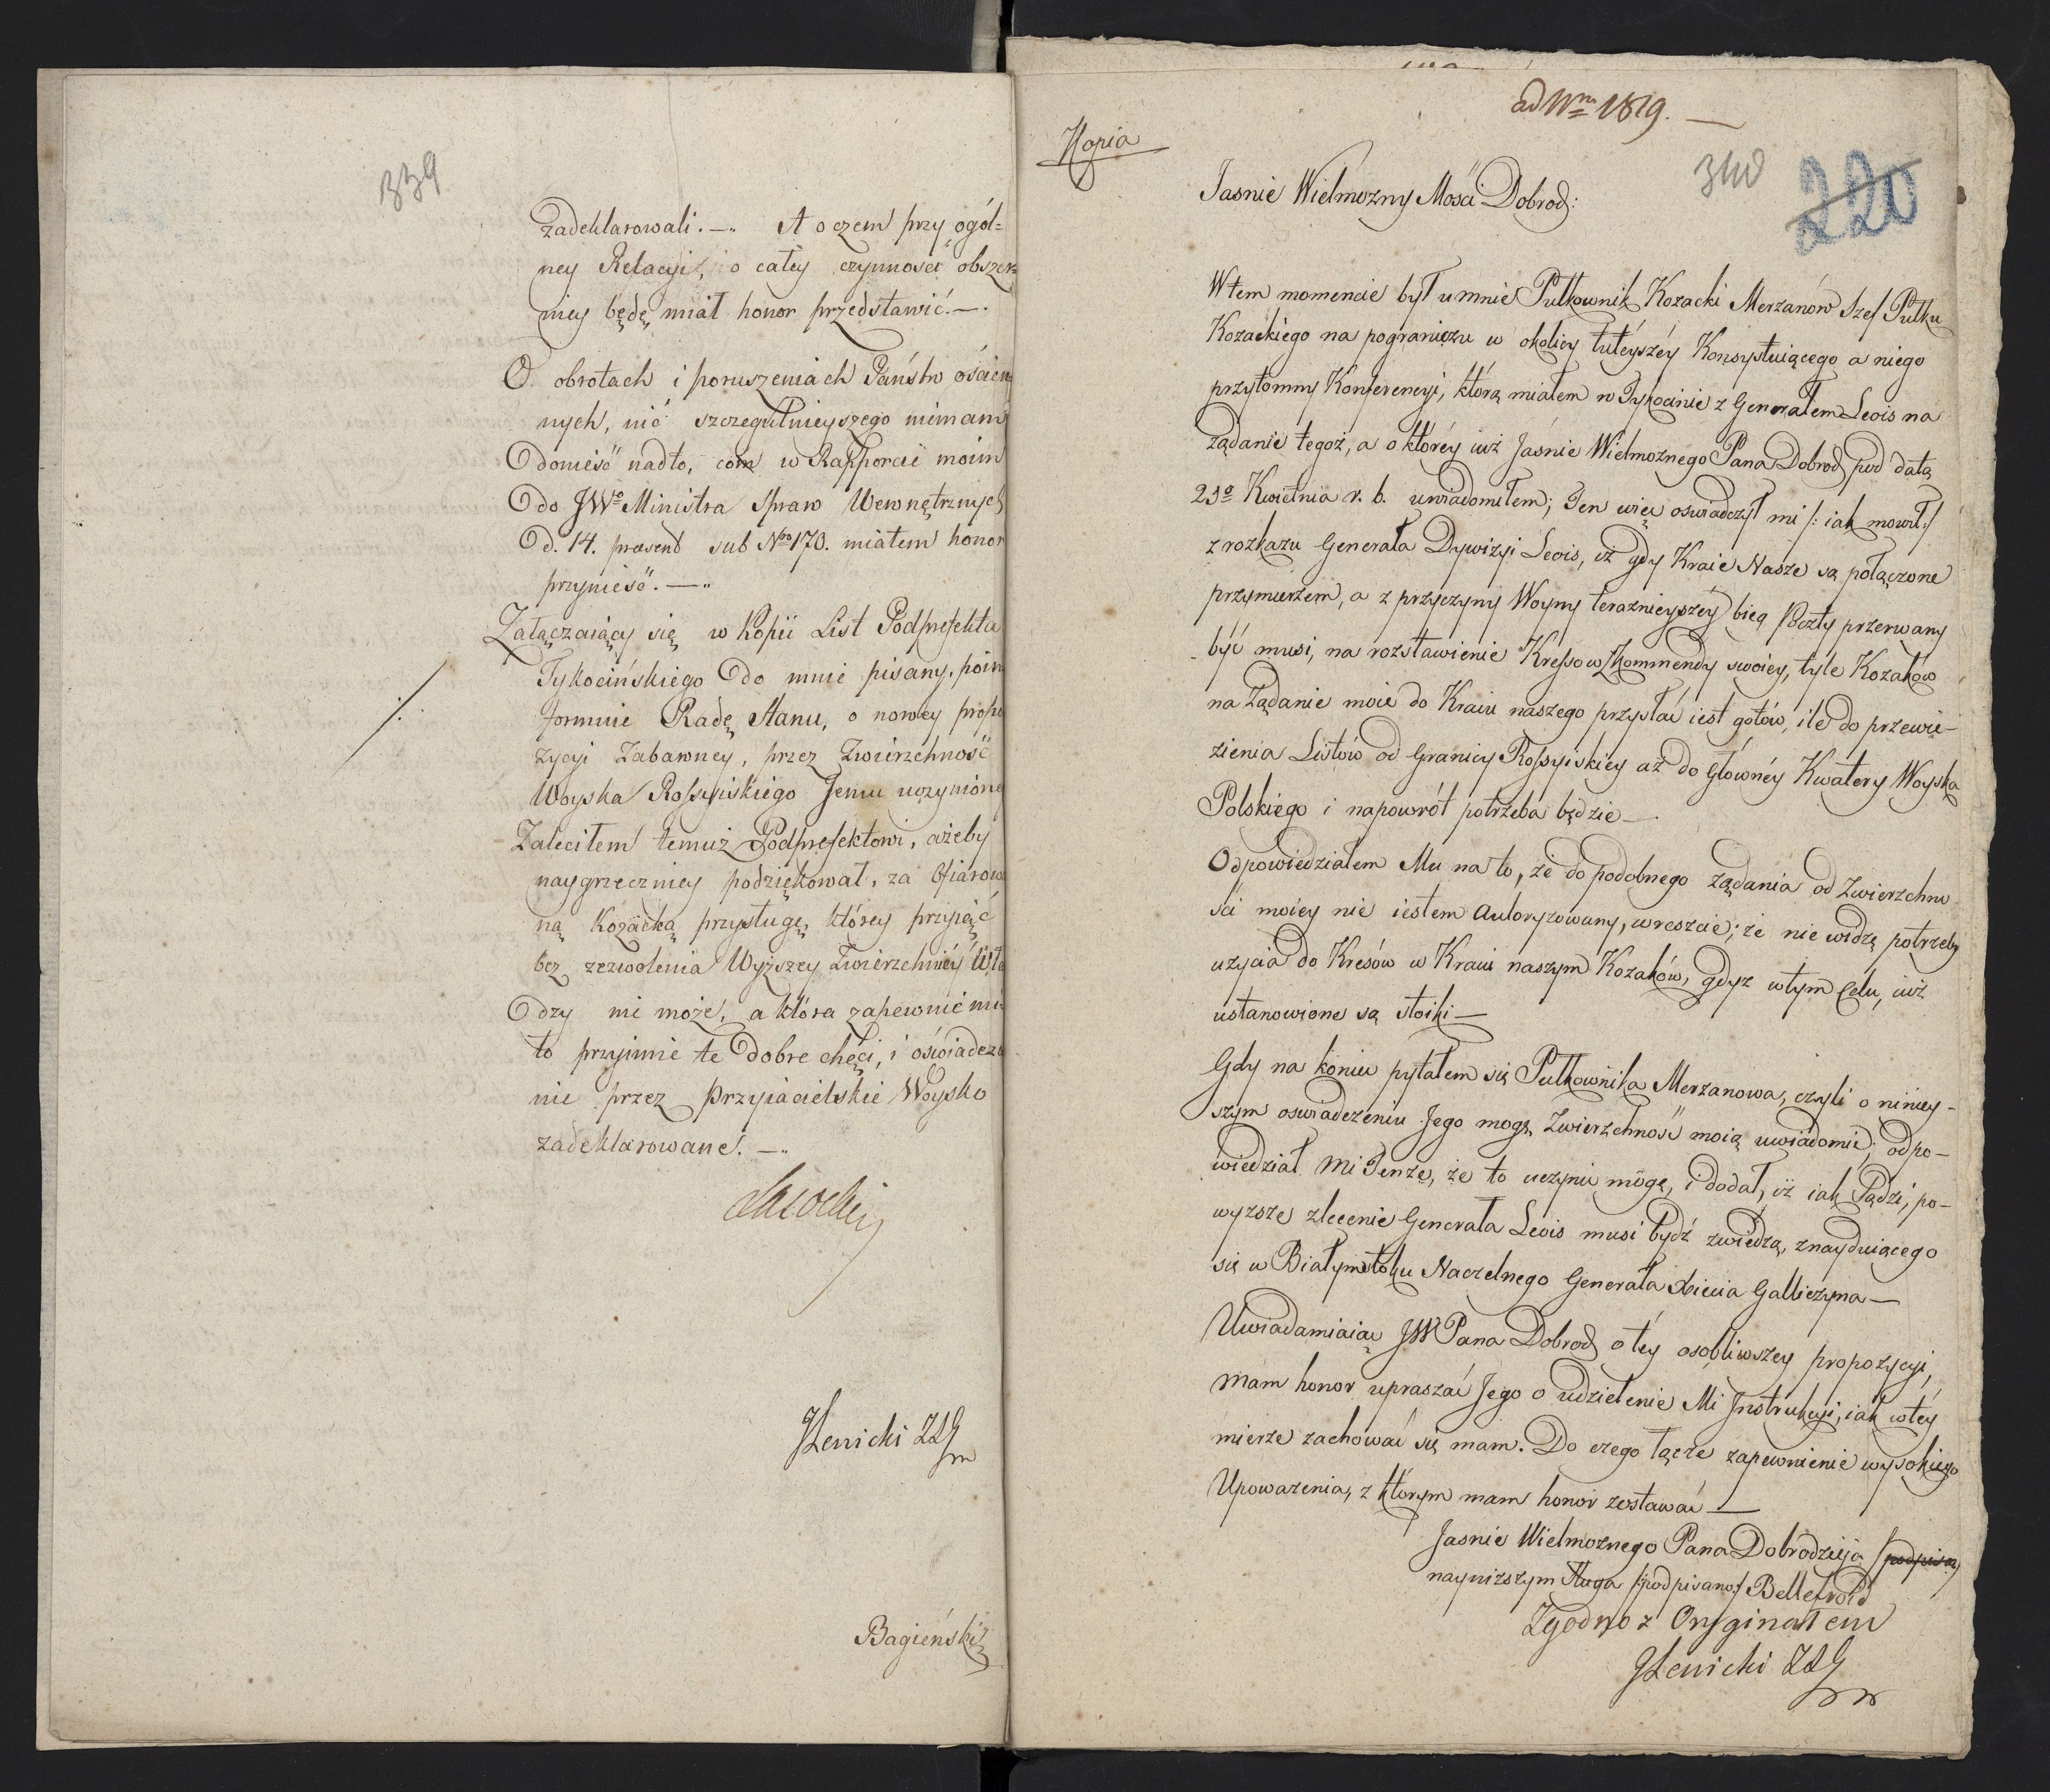 339
zadeklarowali. —„ A o czem przy ogól=
ney Relacyi, o całey czynności obszer
niey będę miał honor przedstawić. —.
O obrotach i poruszeniach Państw ościen
nych, nić szczegulnieyszego niemam
donieść nadto, com w Rapporcie moim
do JWo Ministra Spraw Wewnętrznych
d. 14. praesent sub Nro 170. miałem honor
przynieść. —„
Załączaiący się w Kopii List Podprefekta
Tykocińskiego do mnie pisany, poin
formuie Radę Stanu, o nowey propo
zycyi Zabawney, przez Zwierzchność
Woyska Rossyiskiego Jemu uczynione
Zaleciłem temuż Podprefektowi, ażeby
naygrzeczniey podziękował, za Ofiarowa
ną Kozacką przysługę, którey przyiąć
bez zezwolenia Wyższey Zwierzchniey Wła
dzy nie może, a która zapewnie mi
to przyimie te dobre chęci, i oświadcze
nie przez Przyiacielskie Woysko
zadeklarowane. —„
Lasocki
JLenicki ZSG
Bagieński
ad Nrm 1819. —
Kopia
340
220
Jasnie Wielmozny Mości Dobrod:
Wtem momencie był u mnie Pułkownik Kozacki Merzanów Szef Pułku
Kozackiego na pograniczu w okolicy tuteyszéy Konsystuiącego a niego
przytomny Konferencyi, którą miałem w Tykocinie z Generałem Lewis na
żądanie tegoż, a o któréy iuż Jaśnie Wielmożnego Pana Dobrod pod datą
23o Kwietnia r. b. uwiadomiłem; Ten więc oswiadczył mi /: iak mowił :/
z rozkazu Generała Dywizyi Lewis, iż gdy Kraie Nasze są połączone
przymierzem, a z przyczyny Woyny terazniéyszéy bieg Poczty przerwany
być musi, na rozstawienie Kressow z kommendy swoiey, tyle Kozaków
na żądanie moie do Kraiu naszego przysłać iest gotów, ile do przewie-
zienia Listów od Granicy Rossyiskiey aż do głównéy Kwatery Woyska
Polskiego i napowrót potrzeba będzie —
Odpowiedziałem Mu na to, że do podobnego żądania od Zwierzchno
ści moiey nie iestem Autoryzowany, wreszcie; że nie widzę potrzeby
użycia do Kresów w Kraiu naszym Kozaków, gdyż w tym Celu, iuż
ustanowione są stoiki —
Gdy na koniec pytałem się Pułkownika Merzanowa, czyli o ninięy-
szym oswiadczeniu Jego mogę Zwierzchność moią uwiadomić, odpo-
wiedział Mi Tenże, że to uczynić mogę, i dodał, iż iak Sądzi, po-
wyższe zlecenie Generała Lewis musi bydź z wiedzą, znayduiącego
się w Białymstoku Naczelnego Generała Xięcia Galliczyna —
Uwiadamiaiąc JW Pana Dobrod o téy osobliwszey propozycyi,
mam honor upraszać Jego o udzielenie Mi Instrukcyi, iak w téy
mierze zachować się mam. Do czego łączę zapewnienie wysokiego
Upoważenia, z którym mam honor zostawać —
Jasnie Wielmoznego Pana Dobrodzieja /podpisany
nayniższym Sługa /:podpisano:/ Bellefroid
Zgodno z Oryginałem
JLenicki ZSG